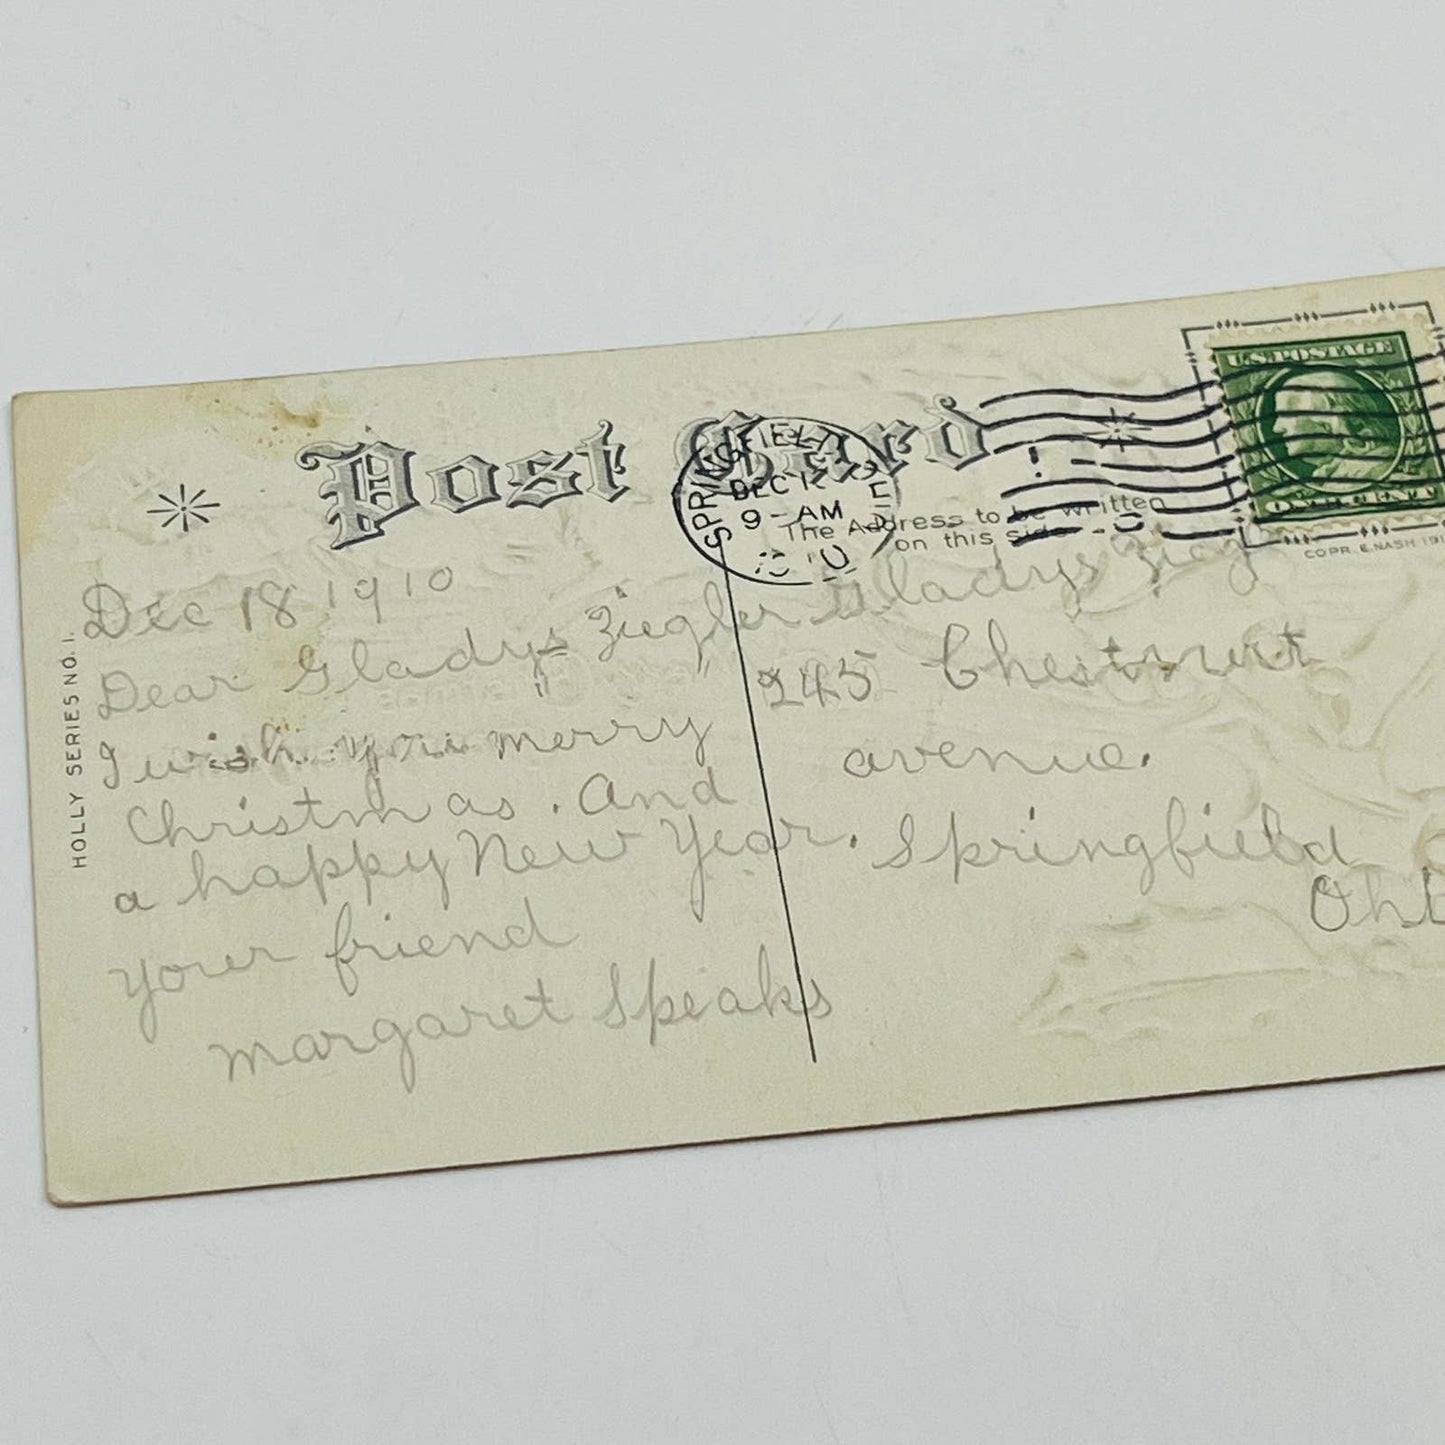 Post Card
SPRINGFIELD
DEC 1
9 - AM
The Address to be written
on this side
U.S. POSTAGE
COPR. E. NASH 191
HOLLY SERIES NO. 1.
Dec 18 1910
Dear Gladys Ziegler
I wish you merry
Christmas. And
a happy New Year.
your friend
margaret Speaks
Gladys Zieg
245 Chestnut
avenue.
Springfield
Ohio